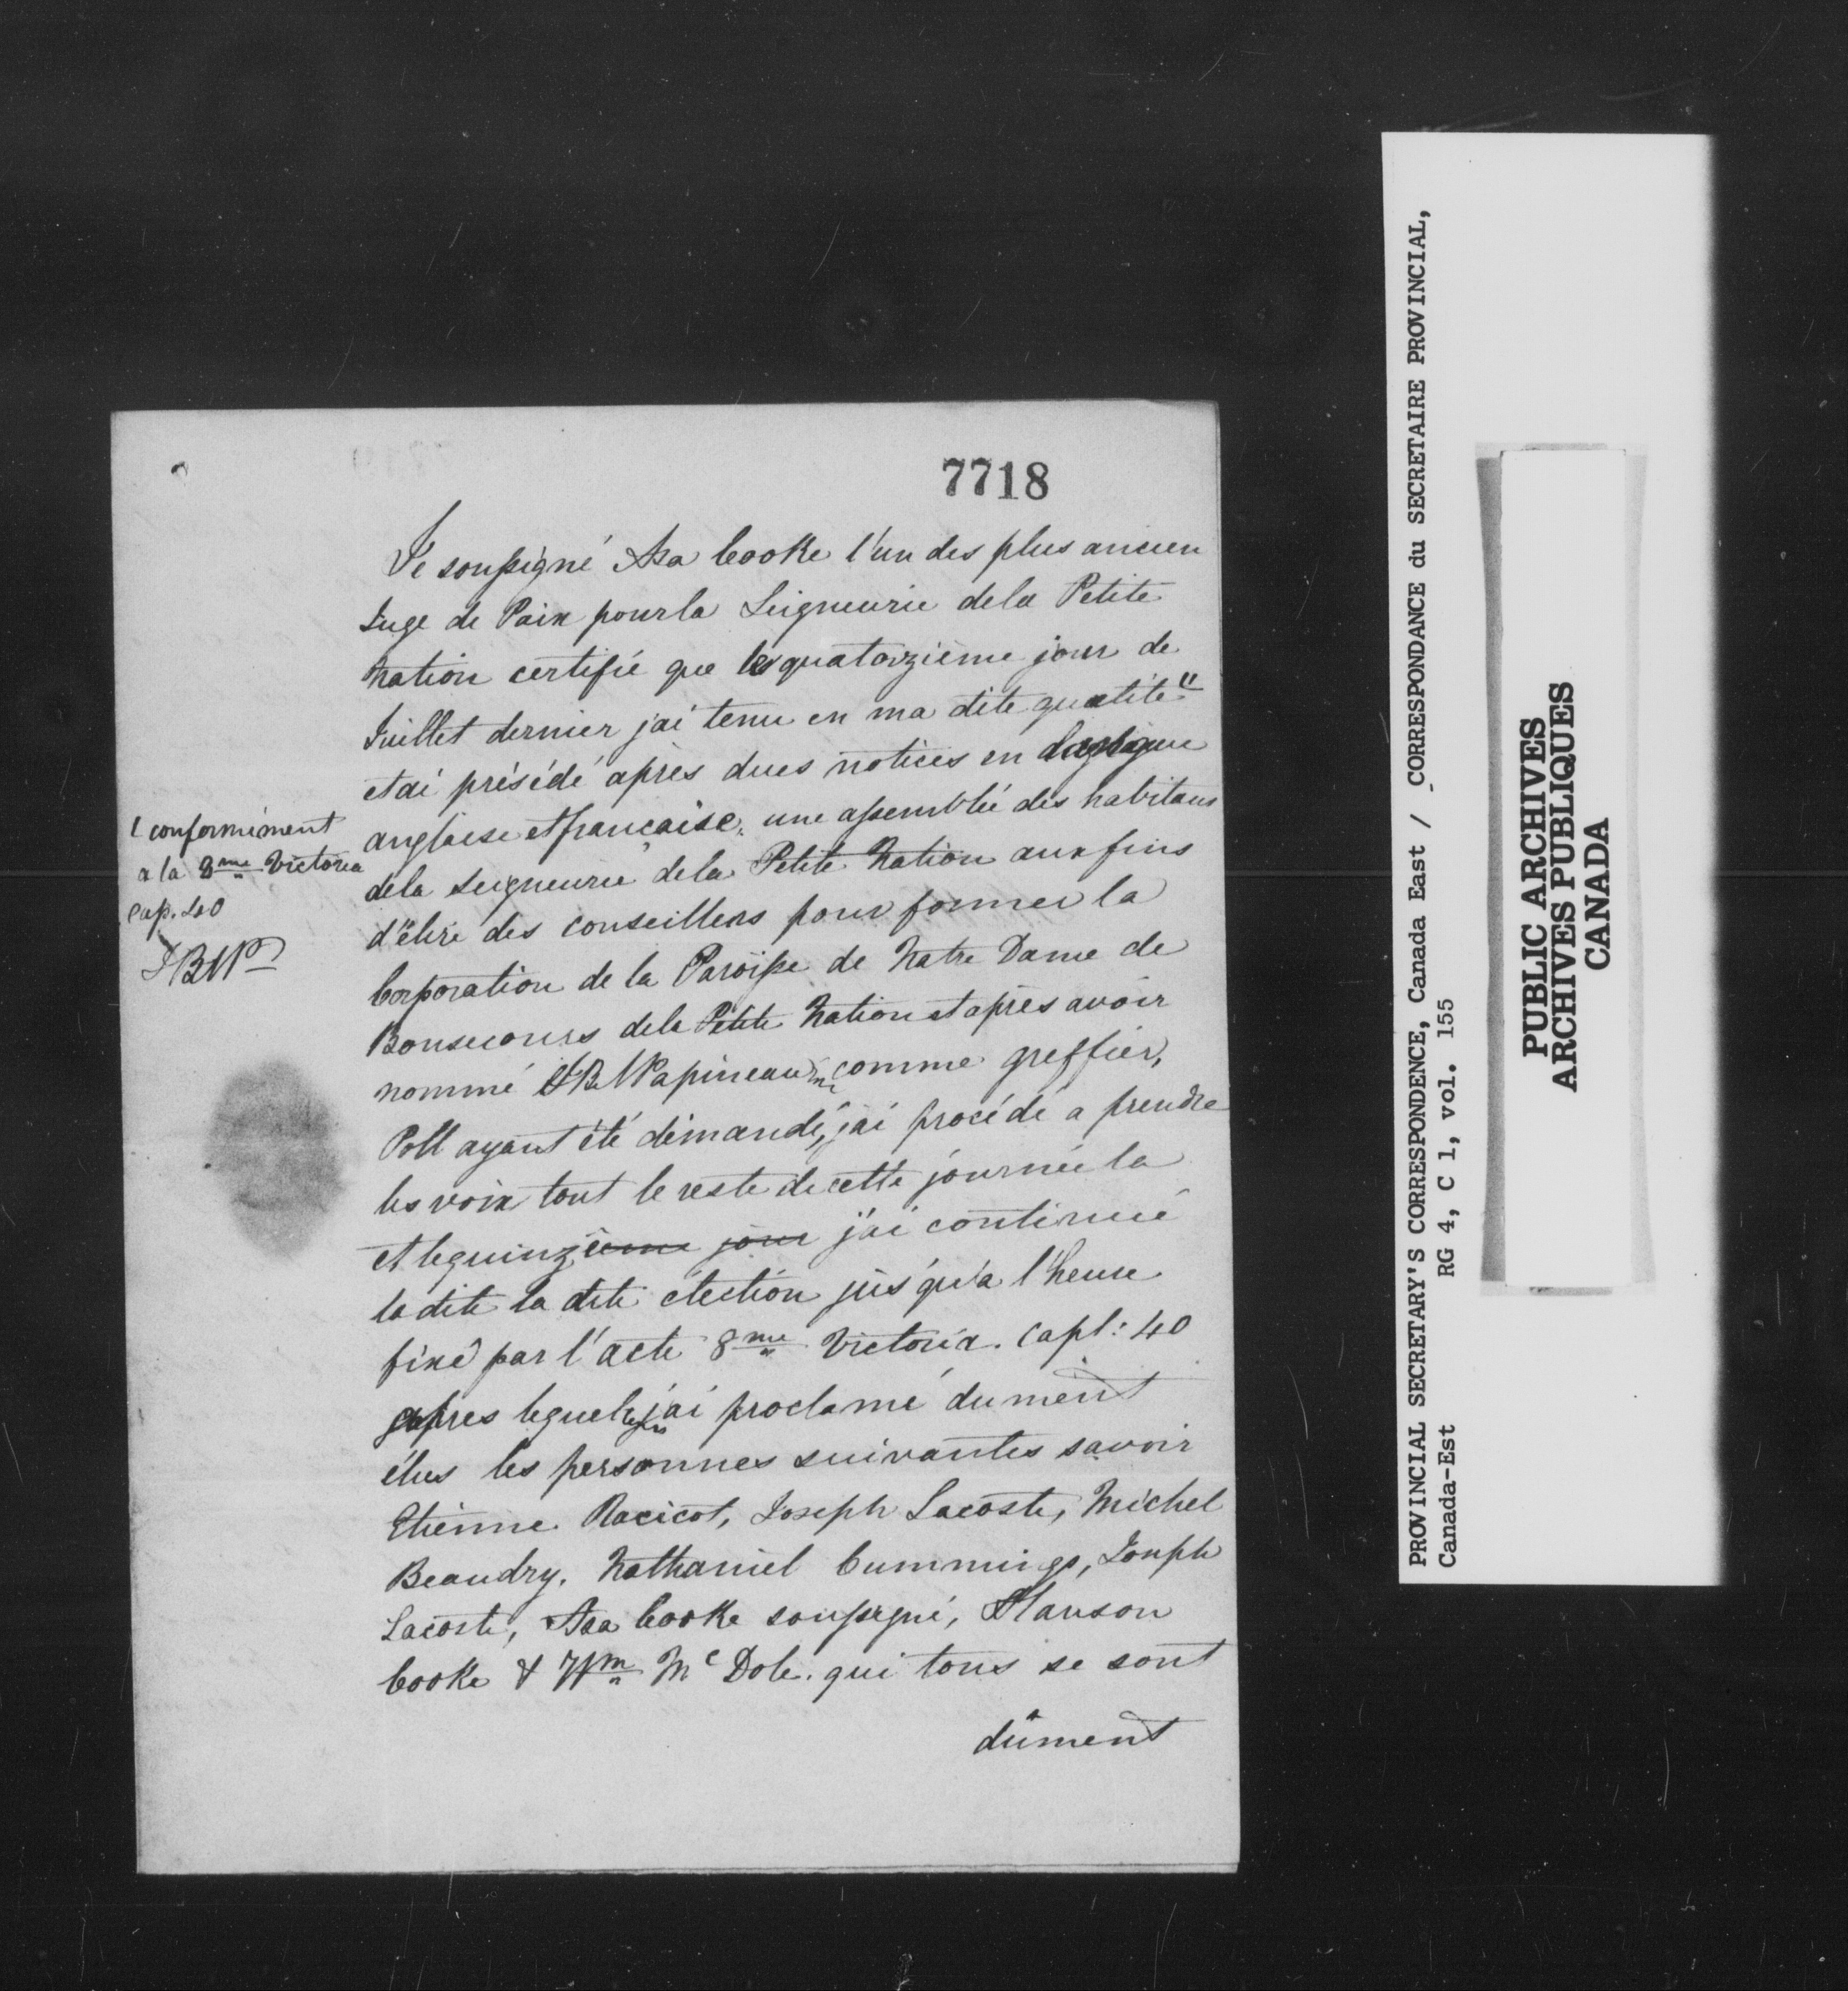 7718
Je soussigné Asa Cooke l'un des plus ancien
Juge de Paix pour la Seigneurie dela Petite
Nation certifié que le quatorzième jour de
Juillet dernier j'ai tenu en ma dite qualité "
et ai présidé après dues notices en langue
anglaise et francaise, une assemblée des habitans
dela seigneurie dela Petite Nation aux fins
d'élire des conseillers pour former la
Corporation de la Paroisse de Notre Dame de
Bonsecours dela Petite Nation et après avoir
nommé JBNPapineau comme greffier,
Poll ayant été démandé, j'ai procédé a prendre
les voix tout le reste de cette journée la
et le quinzième jour j'ai continué
la dite la dite élection jus'qu'a l'heure
fixé par l'acte 8me Victoria. Capt: 40
après lequel j'ai proclamé dument
élus les personnes suivantes savoir
Etienne Racicot, Joseph Lacoste, Michel
Beaudry, Nathaniel Cummings, Joseph
Lacoste, Asa Cooke soussigné, Alanson
Cooke & Wm McDole. qui tous se sont
dûment
conformément
a la 8me Victoria
Cap. 40
JBNP
PROVINCIAL SECRETARY'S CORRESPONDENCE, Canada East / CORRESPONDANCE du SECRETAIRE PROVINCIAL,
Canada-Est RG 4, C 1, vol. 155
PUBLIC ARCHIVES
ARCHIVES PUBLIQUES
CANADA